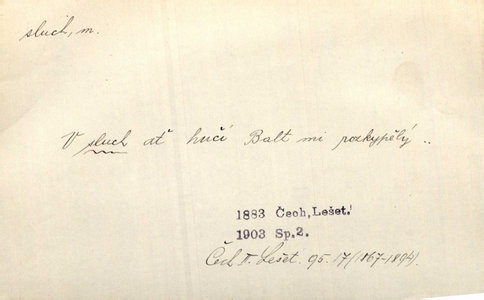 sluch, m.
V sluch ať hučí Balt mi rozkypělý ..
1883 Čech, Lešet.
1903 Sp.2.
Čech II. Lešet. 95. 17/(167-1894).